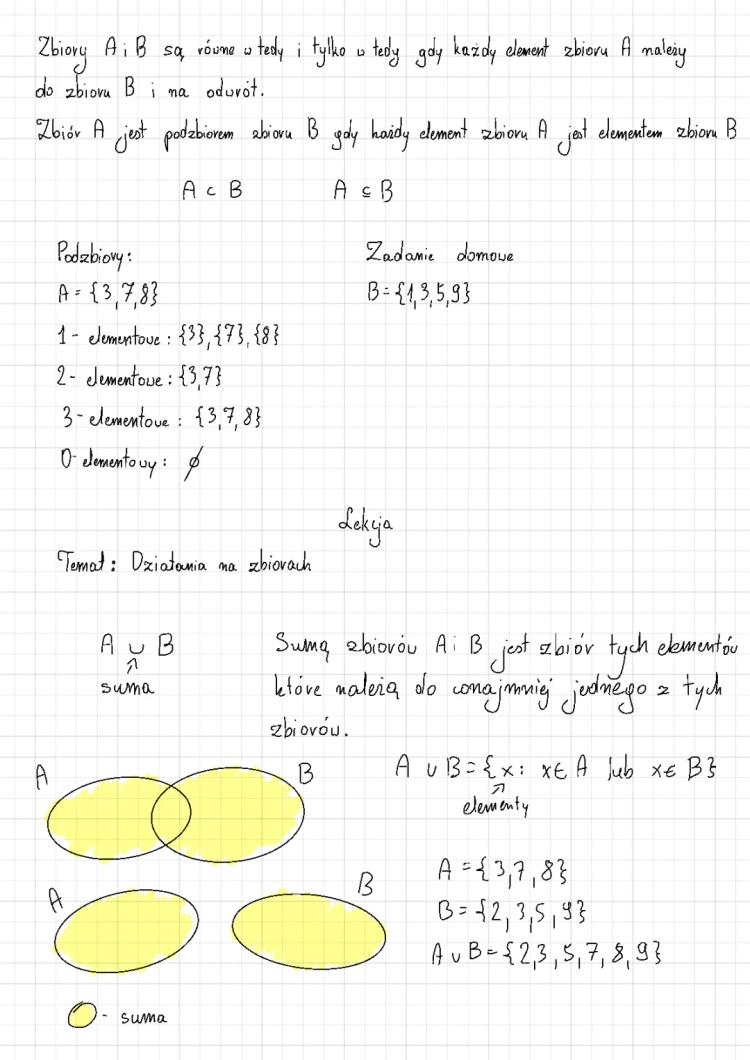 Zbiory A i B są równe wtedy i tylko wtedy gdy każdy element zbioru A należy
do zbioru B i na odwrót.
Zbiór A jest podzbiorem zbioru B gdy każdy element zbioru A jest elementem zbioru B
A ⊂ B A ⊆ B
Podzbiory: Zadanie domowe
A = {3,7,8} B={1,3,5,9}
1 - elementowe : {3},{7},{8}
2 - elementowe : {3,7}
3 - elementowe : {3,7,8}
0 - elementowy : ∅
Lekcja
Temat: Działania na zbiorach
A ∪ B
↑
suma
Sumą zbiorów A i B jest zbiór tych elementów
które należą do conajmniej jednego z tych
zbiorów.
A B
A ∪ B = {x : x∈ A lub x∈ B}
↑
elementy
A B
A = {3,7,8}
B = {2,3,5,9}
A ∪ B = {2,3,5,7,8,9}
- suma